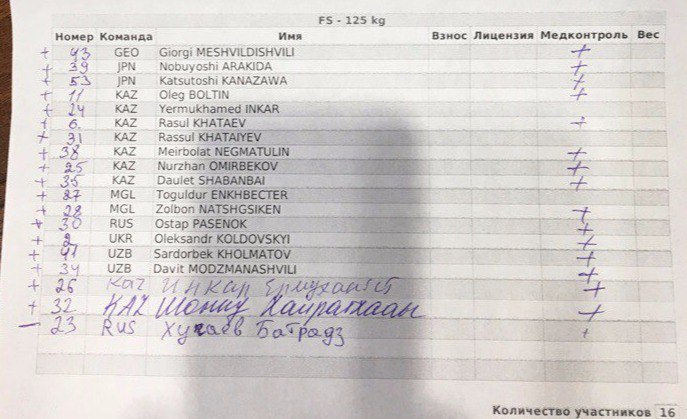 FS - 125 kg
Номер Команда Имя Взнос Лицензия Медконтроль Вес
+ 43 GEO Giorgi MESHVILDISHVILI +
+ 39 JPN Nobuyoshi ARAKIDA +
+ 53 JPN Katsutoshi KANAZAWA +
+ 11 KAZ Oleg BOLTIN +
+ 24 KAZ Yermukhamed INKAR
+ 6. KAZ Rasul KHATAEV +
+ 31 KAZ Rassul KHATAIYEV
+ 38 KAZ Meirbolat NEGMATULIN +
+ 25 KAZ Nurzhan OMIRBEKOV +
+ 35 KAZ Daulet SHABANBAI +
+ 27 MGL Toguldur ENKHBECTER
+ 28 MGL Zolbon NATSHGSIKEN +
+ 30 RUS Ostap PASENOK +
+ 2 UKR Oleksandr KOLDOVSKYI +
+ 41 UZB Sardorbek KHOLMATOV +
+ 34 UZB Davit MODZMANASHVILI +
+ 26 KAZ Инкар +
+ 32 KAZ +
- 23 RUS Батрадз +
Количество участников 16